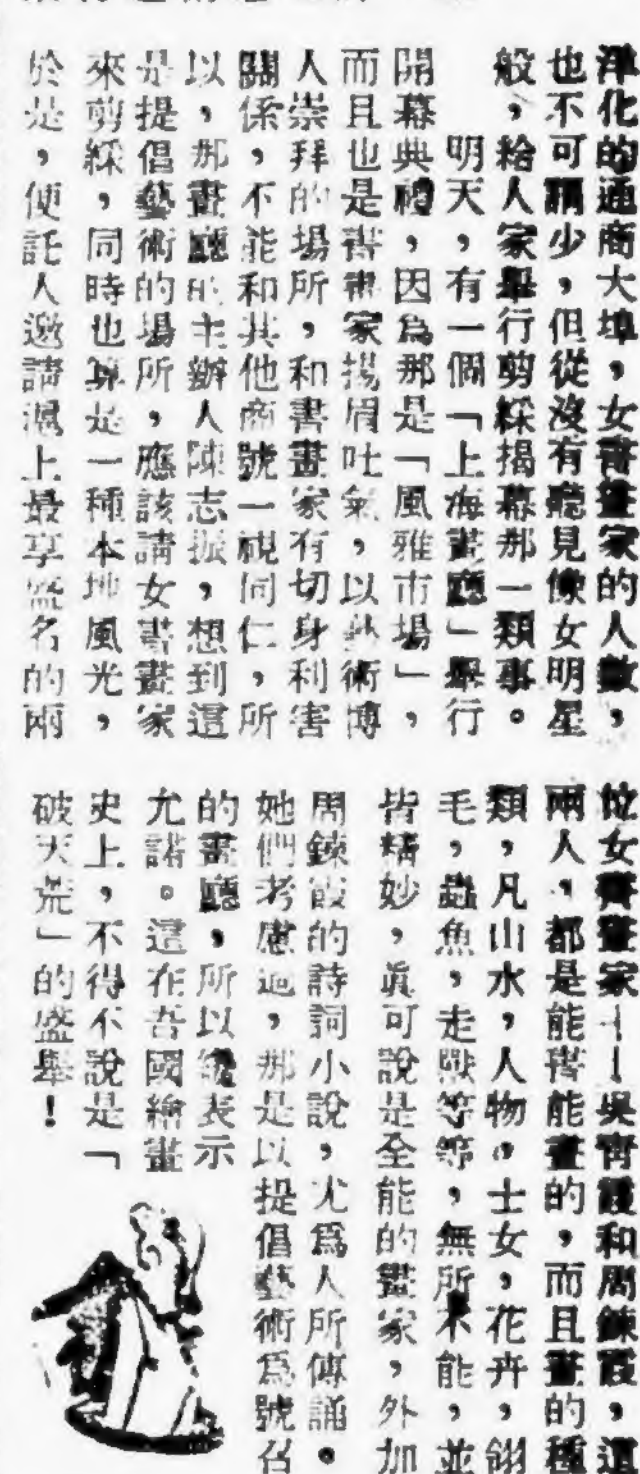 洋化的通商大埠，女書畫家的人數，
也不可謂少，但從沒有聽見像女明星
般，給人家舉行剪綵揭幕那一類事。
明天，有一個「上海畫廳」舉行
開幕典禮，因為那是「風雅市場」，
而且也是書畫家揚眉吐氣，以藝術博
人崇拜的場所，和書畫家有切身利害
關係，不能和其他商號一視同仁，所
以，那畫廳的主辦人陳志振，想到這
是提倡藝術的場所，應該請女書畫家
來剪綵，同時也算是一種本地風光，
於是，便託人邀請滬上最享盛名的兩
位女書畫家——吳青霞和周鍊霞，這
兩人，都是能書能畫的，而且畫的種
類，凡山水，人物，士女，花卉，翎
毛，蟲魚，走獸等等，無所不能，並
皆精妙，眞可說是全能的畫家，外加
周鍊霞的詩詞小說，尤爲人所傳誦。
她們考慮過，那是以提倡藝術爲號召
的畫廳，所以纔表示
允諾。這在吾國繪畫
史上，不得不說是「
破天荒」的盛舉！